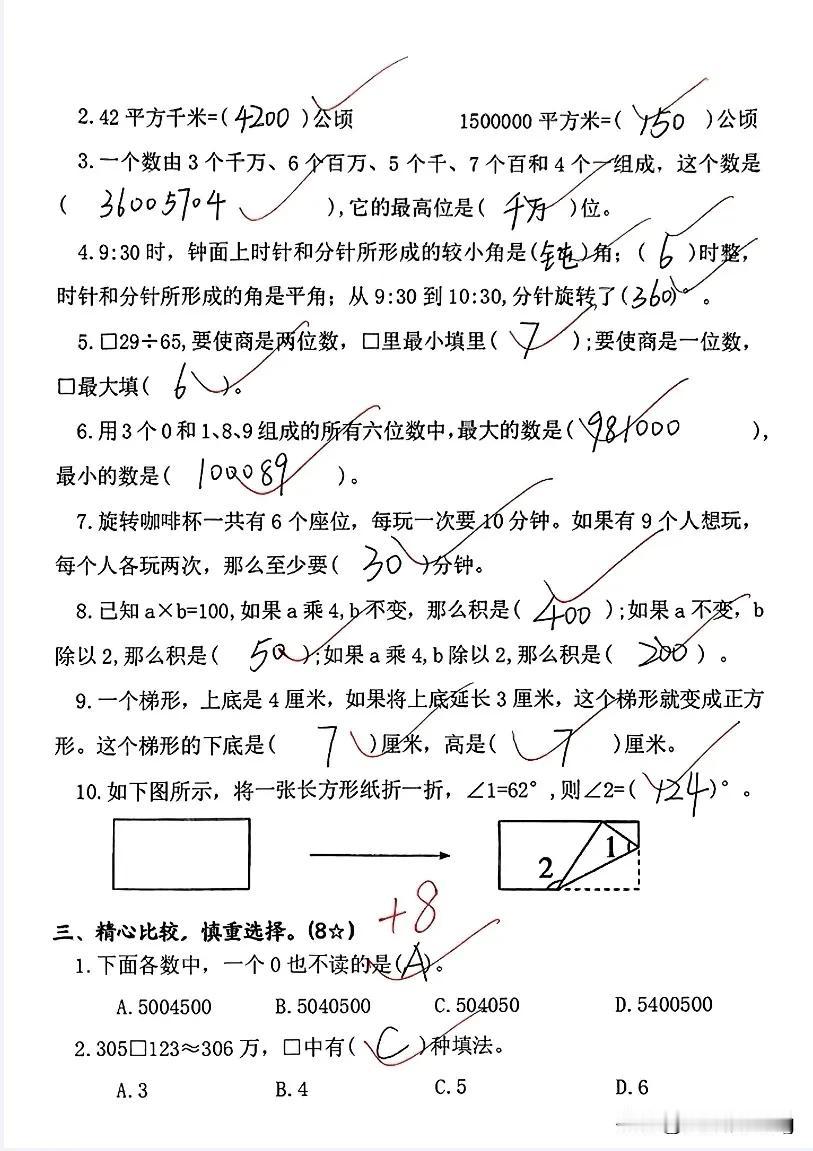 2.42平方千米=( 4200 )公顷 1500000平方米=( 150 )公顷
3.一个数由3个千万、6个百万、5个千、7个百和4个一组成，这个数是
( 36005704 ),它的最高位是( 千万 )位。
4.9:30时，钟面上时针和分针所形成的较小角是(钝)角；( 6 )时整，
时针和分针所形成的角是平角；从9:30到10:30,分针旋转了(360)°。
5.□29÷65,要使商是两位数，□里最小填里( 7 );要使商是一位数，
□最大填( 6 )。
6.用3个0和1、8、9组成的所有六位数中,最大的数是( 981000 ),
最小的数是( 100089 )。
7.旋转咖啡杯一共有6个座位，每玩一次要10分钟。如果有9个人想玩，
每个人各玩两次，那么至少要( 30 )分钟。
8.已知a×b=100,如果a乘4,b不变，那么积是( 400 );如果a不变，b
除以2,那么积是( 50 );如果a乘4,b除以2,那么积是( 200 )。
9.一个梯形，上底是4厘米，如果将上底延长3厘米，这个梯形就变成正方
形。这个梯形的下底是( 7 )厘米，高是( 7 )厘米。
10.如下图所示，将一张长方形纸折一折，∠1=62°,则∠2=( 124 )°。
1
2
+8
三、精心比较，慎重选择。(8☆)
1.下面各数中，一个0也不读的是(A)。
A.5004500 B.5040500 C.504050 D.5400500
2.305□123≈306万，□中有( C )种填法。
A.3 B.4 C.5 D.6